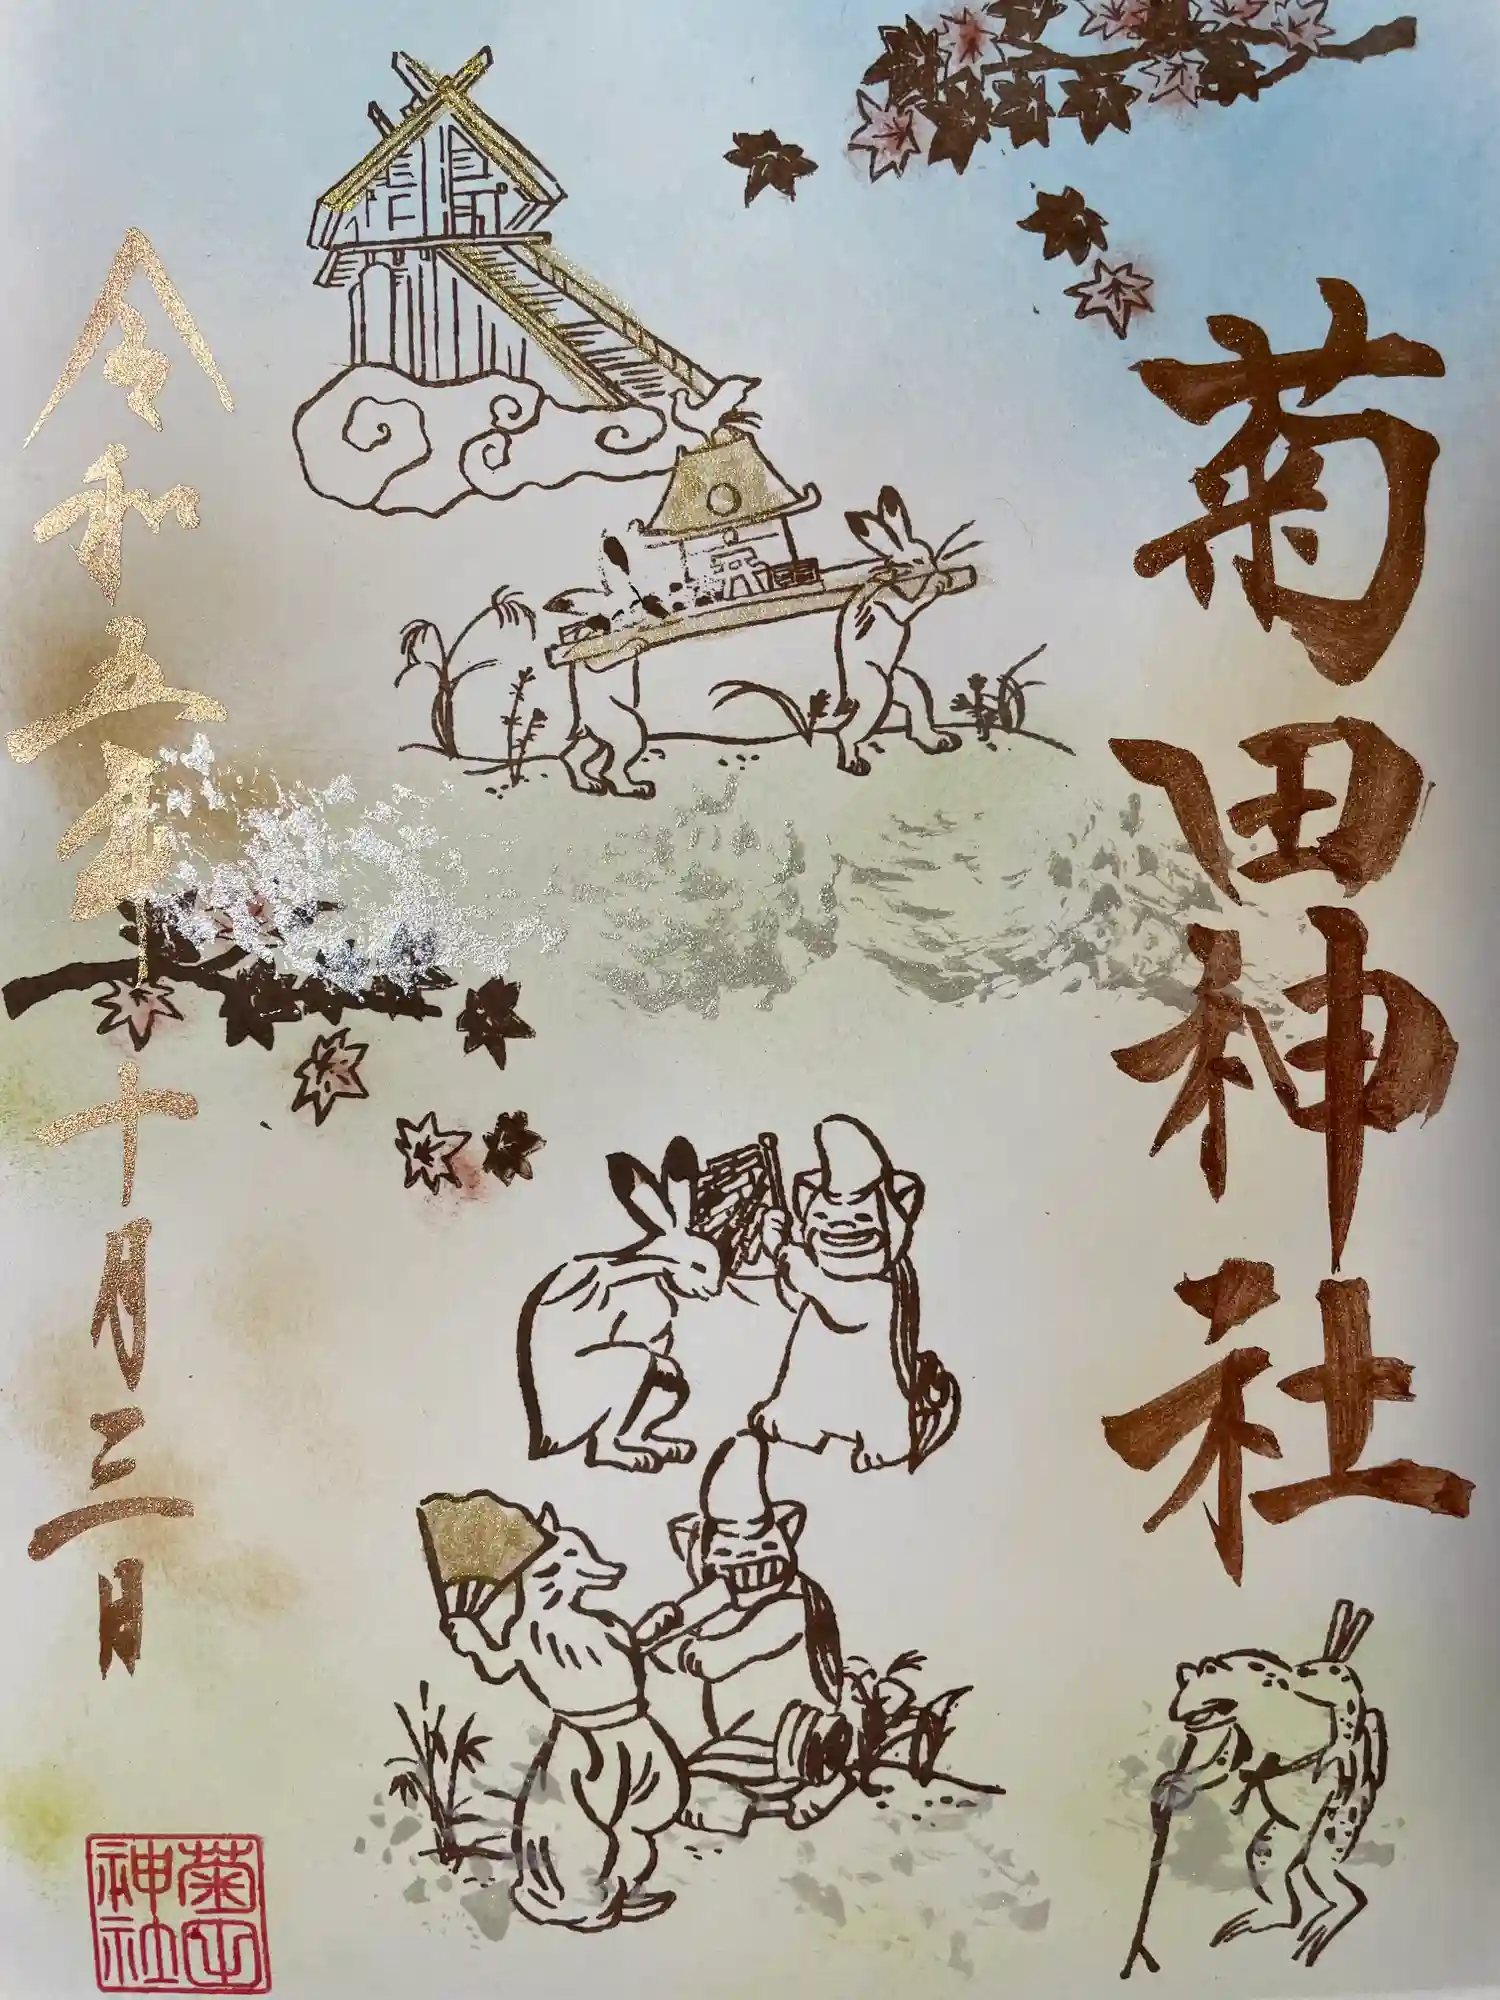 菊田神社
令和五年十月三日
菊田
神社